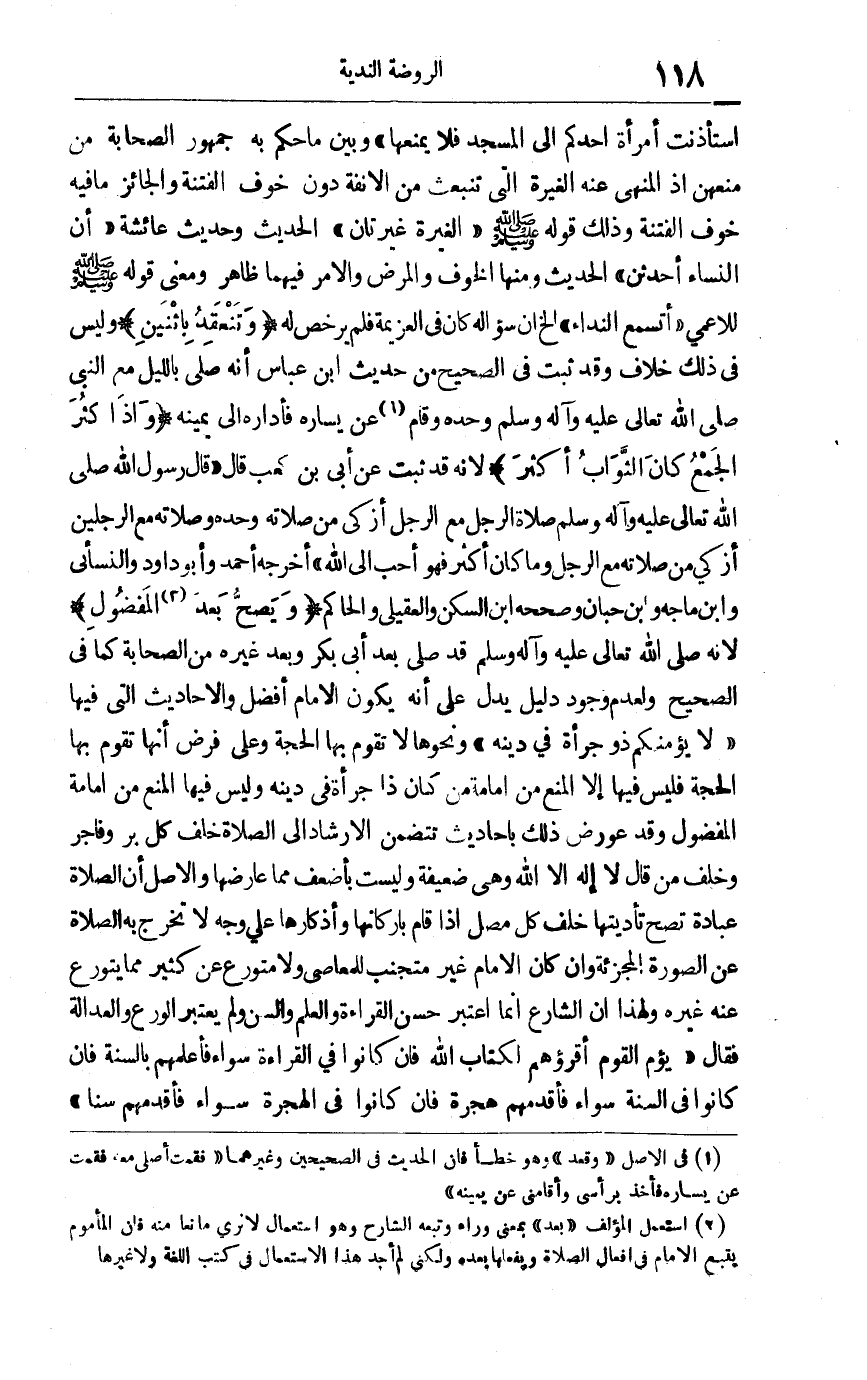 ١١٨ الروضة الندية
استأذنت أمرأة احدكم الى المسجد فلا يمنعها» وبين ماحكم به جمهور الصحابة من
منعهن اذ المنهى عنه الغيرة التى تنبعث من الانفة دون خوف الفتنة والجائز مافيه
خوف الفتنة وذلك قوله ﷺ « الغيرة غيرتان» الحديث وحديث عائشة« أن
النساء أحدثن» الحديث ومنها الخوف والمرض والامر فيهما ظاهر ومعنى قوله ﷺ
للاعمي« أتسمع النداء» الخ ان سؤاله كان فى العزيمة فلم يرخص له ﴿ وَتَنْعَقِدُ بِاثْنَينِ ﴾وليس
فى ذلك خلاف وقد ثبت فى الصحيح من حديث ابن عباس أنه صلى بالليل مع النبي
صلى الله تعالى عليه وآله وسلم وحده وقام (١)عن يساره فأداره الى يمينه ﴿وَ اذَا كثُرَ
الجَمْعُ كانَ الثَّوَابُ أَ كثَرَ ﴾ لانه قد ثبت عن أبى بن كعب قال« قال رسول الله صلى
الله تعالى عليه وآله وسلم صلاة الرجل مع الرجل أزكى من صلاته وحده وصلاته مع الرجلين
أزكي من صلاته مع الرجل وما كان أكثر فهو أحب الى الله» أخرجه أحمد وأبو داود والنسائى
وابن ماجه وابن حبان وصححه ابن السكن والعقيلى والحاكم ﴿ وَ يَصحُّ بَعدَ (٢) المَفضُولِ ﴾
لانه صلى الله تعالى عليه وآله وسلم قد صلى بعد أبى بكر وبعد غيره من الصحابة كما فى
الصحيح ولعدم وجود دليل يدل على أنه يكون الامام أفضل والاحاديث التى فيها
« لا يؤمنكم ذو جرأة في دينه » ونحوها لا تقوم بها الحجة وعلى فرض أنها تقوم بها
الحجة فليس فيها إلا المنع من امامة من كان ذا جرأة فى دينه وليس فيها المنع من امامة
المفضول وقد عورض ذلك باحاديث تتضمن الارشاد الى الصلاة خلف كل بر وفاجر
وخلف من قال لا إله الا الله وهى ضعيفة وليست بأضعف مما عارضها والاصل أن الصلاة
عبادة تصح تأديتها خلف كل مصل اذا قام باركانها وأذكارها علي وجه لا تخرج به الصلاة
عن الصورة المجزئة وان كان الامام غير متجنب للمعاصى ولا متورع عن كثير مما يتورع
عنه غيره ولهذا ان الشارع انما اعتبر حسن القراءة والعلم والسن ولم يعتبر الورع والعدالة
فقال « يؤم القوم أقرؤهم لكتاب الله فان كانوا في القراءة سواء فأعلمهم بالسنة فان
كانوا فى السنة سواء فأقدمهم هجرة فان كانوا فى الهجرة سواء فأقدمهم سنا »
(١) فى الاصل « وقعد »وهو خطأ فان الحديث فى الصحيحين وغيرهما« فقمت أصلى معه فقمت
عن يساره فأخذ برأسى وأقامنى عن يمينه»
(٢) استعمل المؤلف «بعد» بمعنى وراه وتبعه الشارح وهو استعمال لانرى مانعا منه فان المأموم
يتبع الامام فى افعال الصلاة ويفعلها بعده ولكني لم أجد هذا الاستعمال فى كتب اللغة ولاغيرها